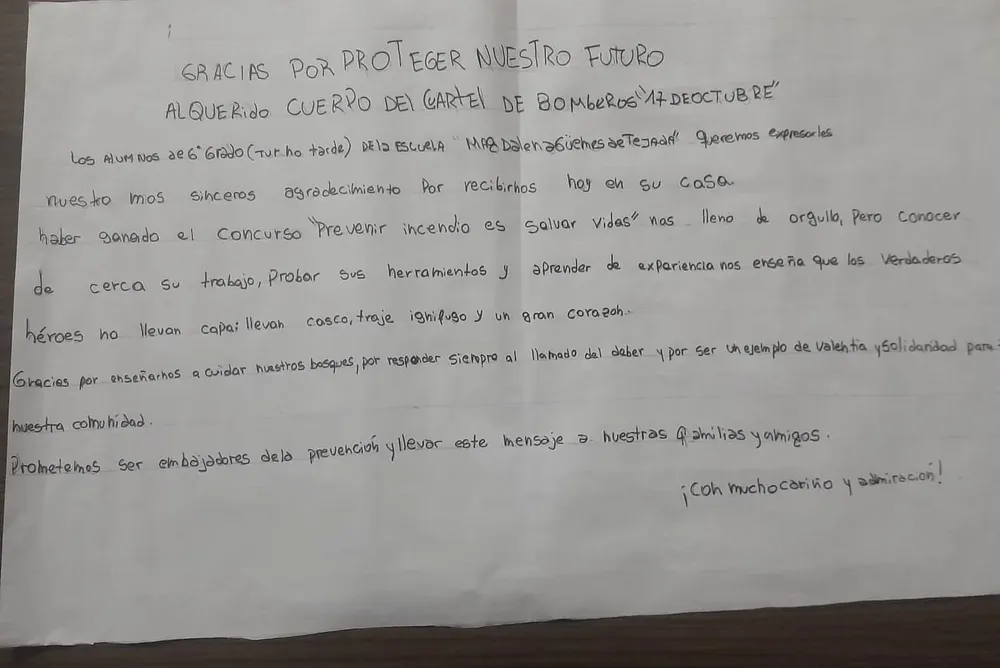 GRACIAS POR PROTEGER NUESTRO FUTURO
AL QUERido CUERPO DEl CUARTEl DE BOMbeROS "17 DE OCTUBRE"
Los AlUMNOS de 6° Grado (Turno tarde) DE la ESCUELA "MAgDalena Güemes de TeJADA" Queremos expresarles
nuestro mas sinceros agradecimiento Por recibirnos hoy en su casa.
haber ganado el concurso "Prevenir incendio es salvar vidas" nos lleno de orgullo, Pero conocer
de cerca su trabajo, Probar sus herramientos y aprender de expariencia nos enseña que los verdaderos
héroes no llevan capa; llevan casco, traje ignifugo y un gran corazon.
Gracias por enseñarnos a cuidar nuestros bosques, por responder siempre al llamado del deber y por ser un ejemplo de valentia y solidaridad para
nuestra comunidad.
Prometemos ser embajadores de la prevención y llevar este mensaje a nuestras familias y amigos.
¡Con mucho cariño y admiración!